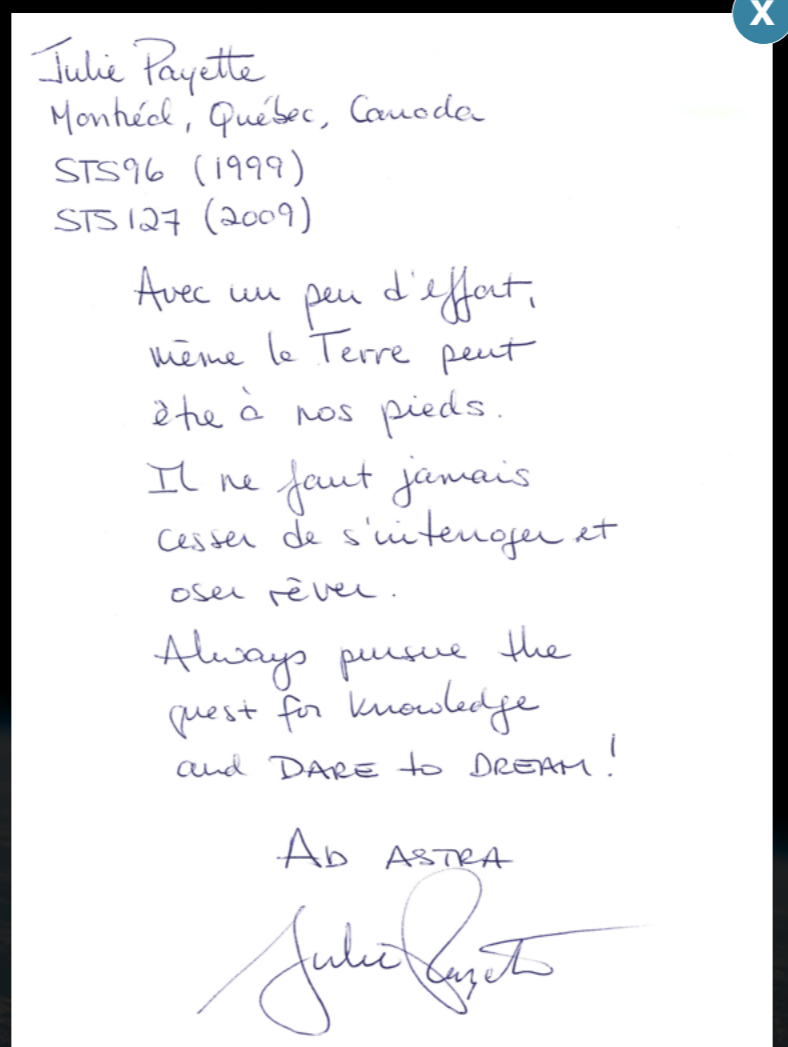 X
Julie Payette
Montréal, Québec, Canada
STS96 (1999)
STS127 (2009)
Avec un peu d'effort,
même la Terre peut
être à nos pieds.
Il ne faut jamais
cesser de s'interroger et
oser rêver.
Always pursue the
quest for knowledge
and DARE to DREAM!
AD ASTRA
Julie Payette